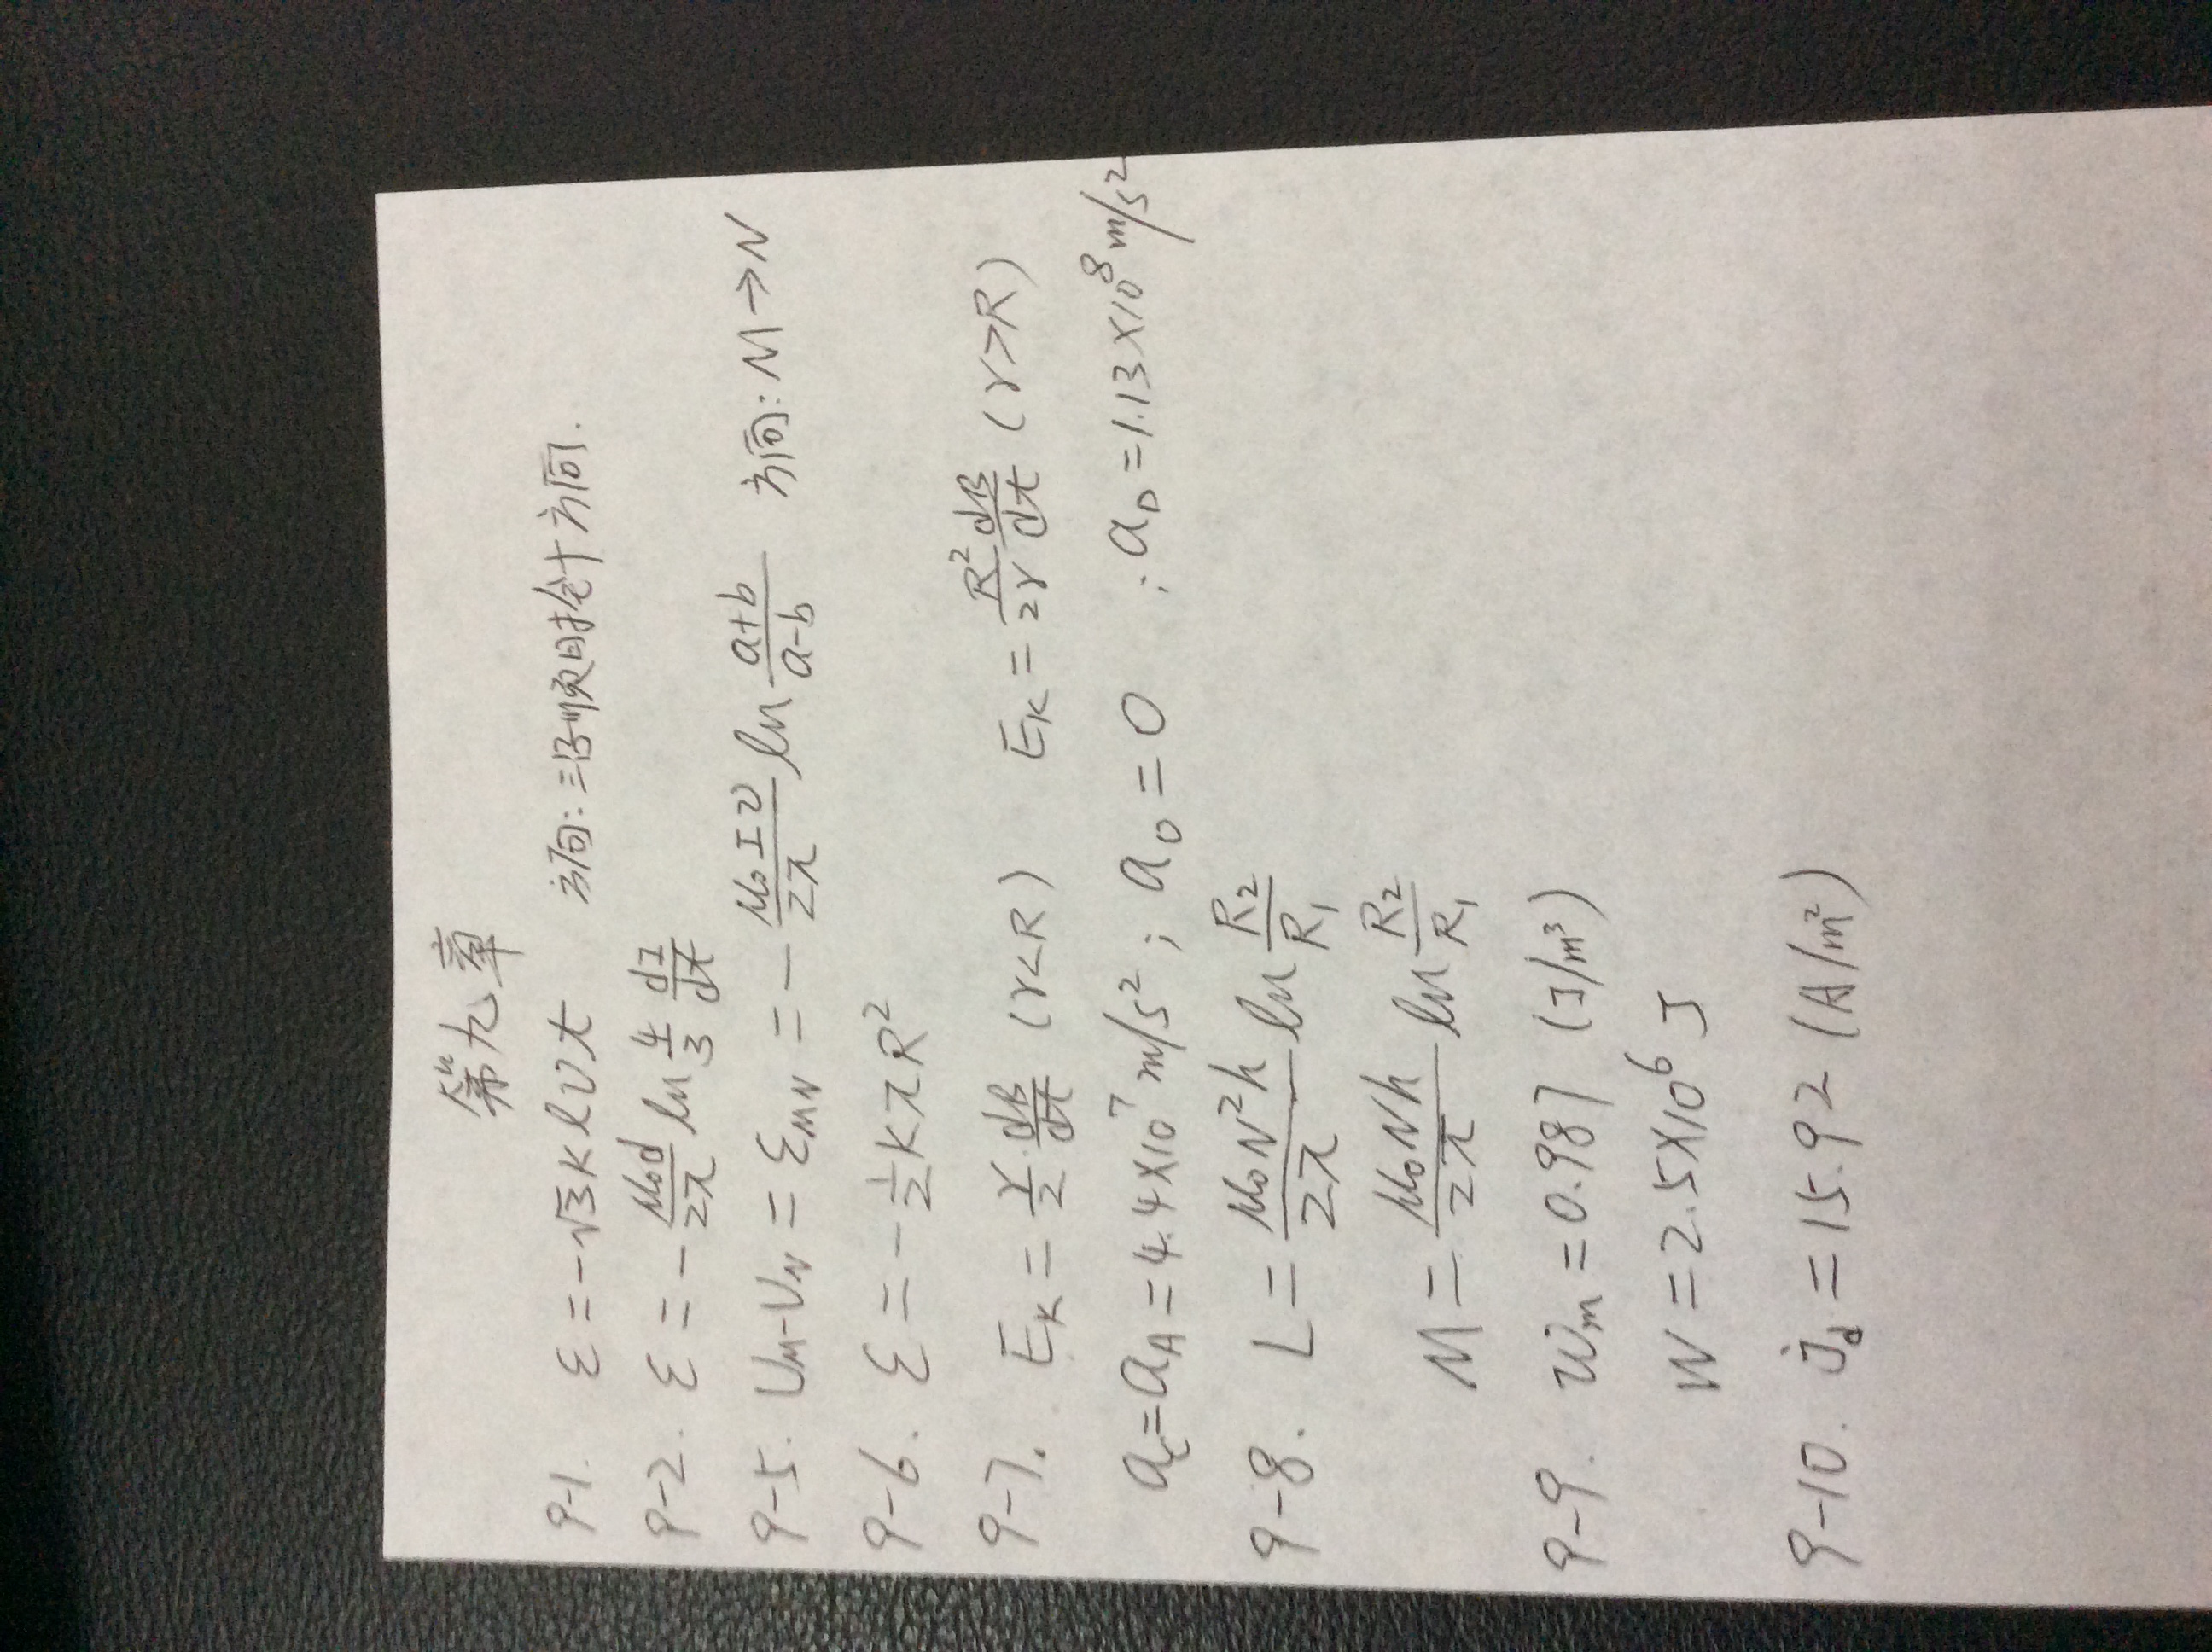 第九章
9-1. ε = -√3 K l v t 方向: 沿顺时针方向.
9-2. ε = - μ₀d/2π ln 4/3 dI/dt
9-5. U_M-U_N = ε_MN = - μ₀Iv/2π ln (a+b)/(a-b) 方向: M→N
9-6. ε = - 1/2 KπR²
9-7. E_K = r/2 · dB/dt (r<R) E_K = R²/2r dB/dt (r>R)
a_c = a_A = 4.4×10⁷ m/s² ; a_0 = 0 ; a_D = 1.13×10⁸ m/s²
9-8. L = μ₀N²h/2π ln R₂/R₁
M = μ₀Nh/2π ln R₂/R₁
9-9. w_m = 0.987 (J/m³)
W = 2.5×10⁶ J
9-10. j_d = 15.92 (A/m²)